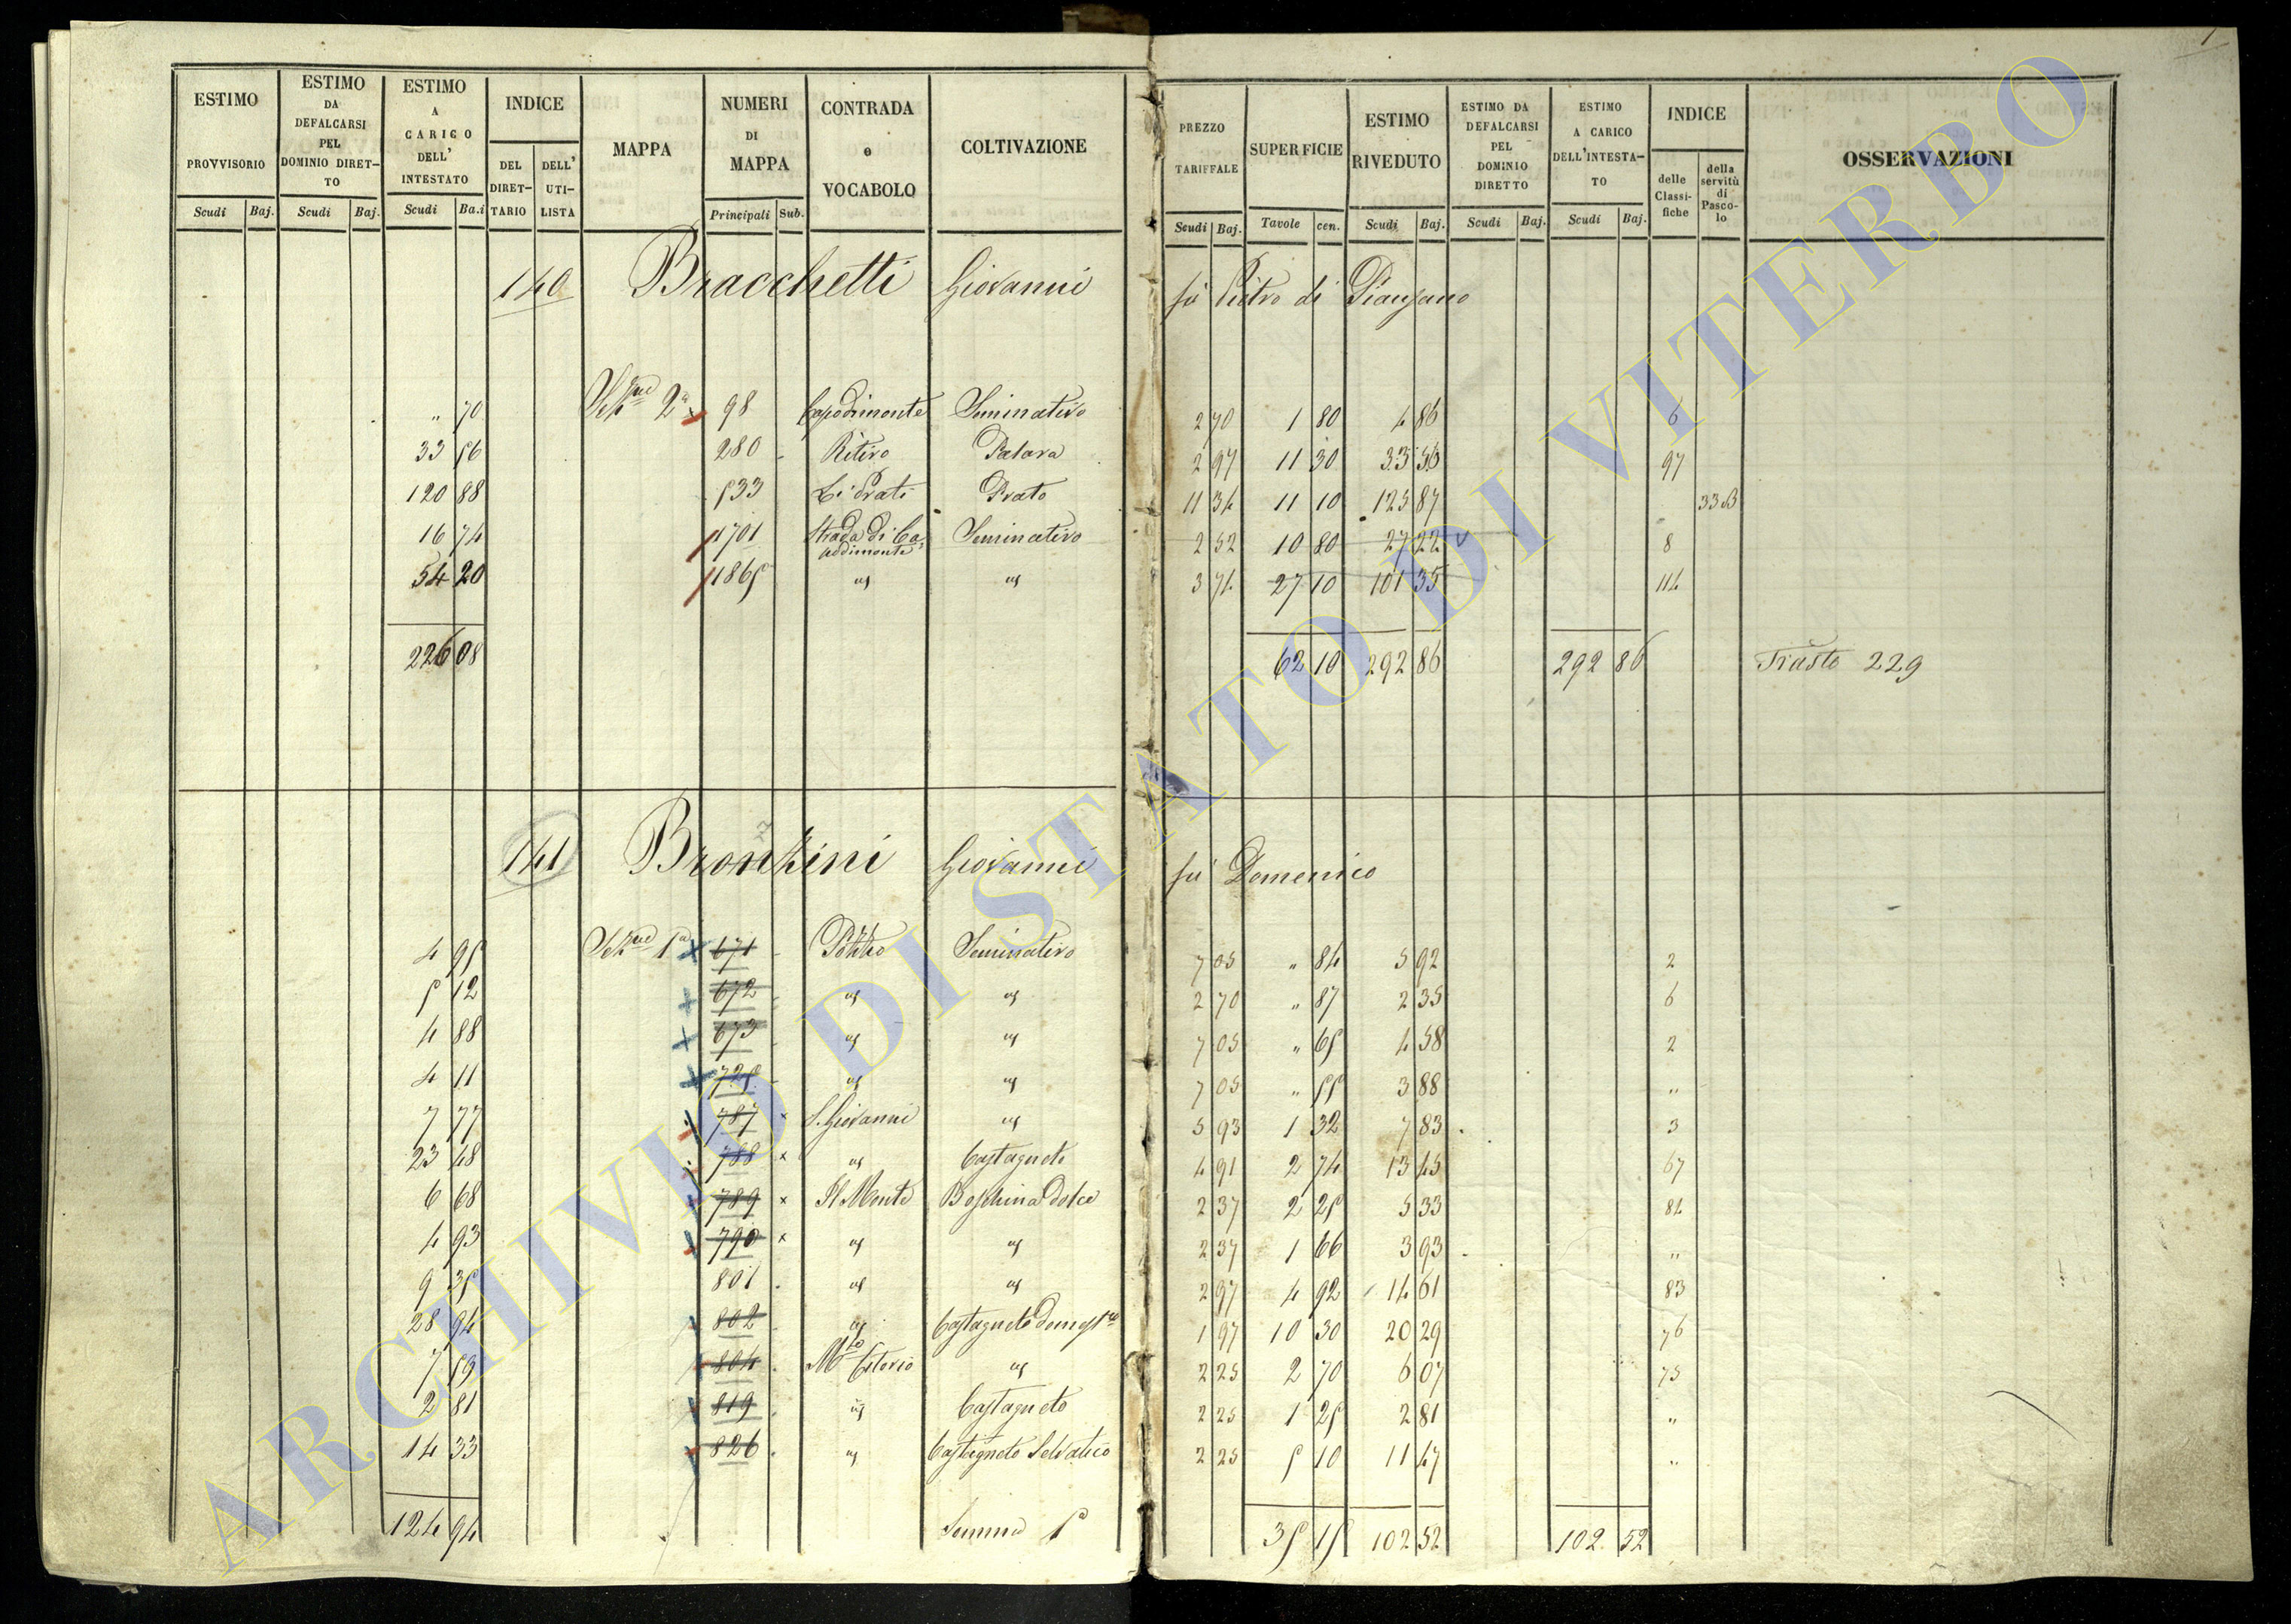 1
ESTIMO PROVVISORIO Scudi Baj.
ESTIMO DA DEFALCARSI PEL DOMINIO DIRETTO Scudi Baj.
ESTIMO A CARICO DELL' INTESTATO Scudi Ba.i
INDICE DEL DIRETTARIO DELL' UTILISTA
MAPPA
NUMERI DI MAPPA Principali Sub.
CONTRADA e VOCABOLO
COLTIVAZIONE
PREZZO TARIFFALE Scudi Baj.
SUPERFICIE Tavole cen.
ESTIMO RIVEDUTO Scudi Baj.
ESTIMO DA DEFALCARSI PEL DOMINIO DIRETTO Scudi Baj.
ESTIMO A CARICO DELL'INTESTATO Scudi Baj.
INDICE delle Classifiche della servitù di Pascolo
OSSERVAZIONI
140 Bracchetti Giovanni fù Pietro di Pianzano
" 70 Sezne 2a 98 Capodimonte Seminativo 2 70 1 80 4 86 6
33 56 280 Ritiro Pascolo 2 97 11 30 33 56 97
120 88 533 Li Prati Prato 11 34 11 10 125 87 33
16 74 1701 Strada di Capodimonte Seminativo 2 52 10 80 27 22 8
54 20 1865 " " 3 74 27 10 101 35 114
226 08 62 10 292 86 292 86 229
141 Bronzini Giovanni fù Domenico
4 95 Sezne 1a 671 Pozzo Seminativo 7 05 " 84 5 92 2
5 12 672 " " 2 70 " 87 2 35 6
4 88 673 " " 7 05 " 65 4 58 2
4 11 725 " " 7 05 " 55 3 88 "
7 77 787 S. Giovanni " 5 93 1 32 7 83 3
23 48 788 " Castagneto 4 91 2 74 13 45 67
6 68 789 Il Monte Boschina dolce 2 37 2 25 5 33 84
4 93 790 " " 2 37 1 66 3 93 "
9 35 801 " " 2 97 4 92 14 61 83
28 94 802 " Castagneto domesco 1 97 10 30 20 29 76
7 59 804 " 2 25 2 70 6 07 75
2 81 819 " Castagneto 2 25 1 25 2 81 "
14 33 826 " Castagneto Selvatico 2 25 5 10 11 47 "
124 94 Somma 35 15 102 52 102 52
ARCHIVIO DI STATO DI VITERBO